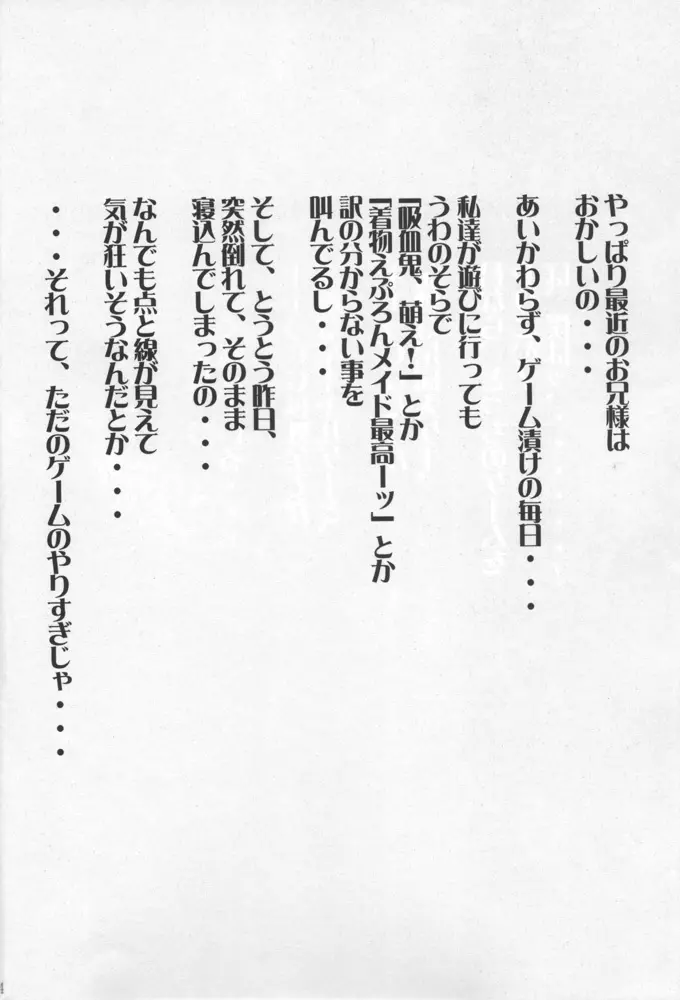 やっぱり最近のお兄様は
おかしいの・・・
あいかわらず、ゲーム漬けの毎日・・・
私達が遊びに行っても
うわのそらで
『吸血鬼、萌え！』とか
『着物えぷろんメイド最高ーッ』とか
訳の分からない事を
叫んでるし・・・
そして、とうとう昨日、
突然倒れて、そのまま
寝込んでしまったの・・・
なんでも点と線が見えて
気が狂いそうなんだとか・・・
・・・それって、ただのゲームのやりすぎじゃ・・・